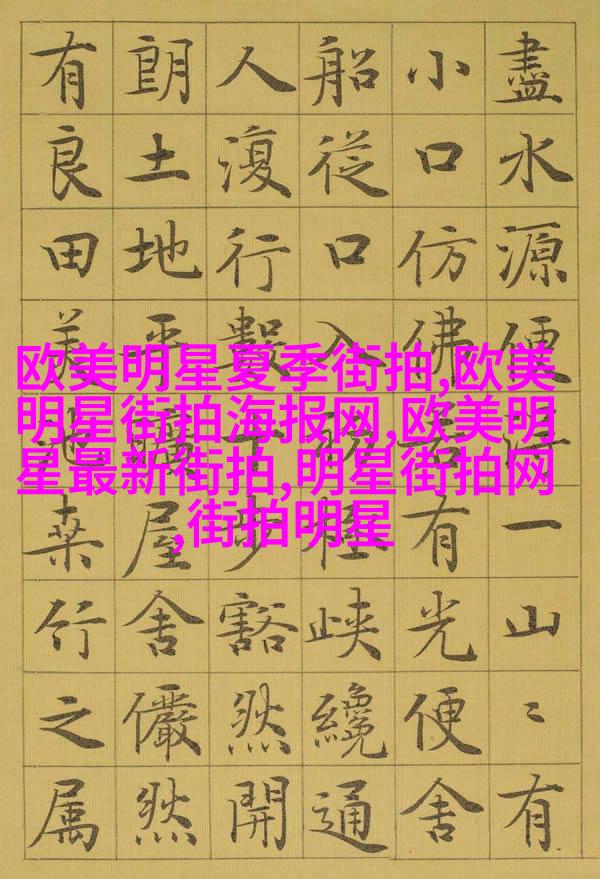 盡水源便得一山〻有
小口仿佛若有光便舍
船從口入初極峽纔通
人復行數十步豁然開
朗土地平曠屋舍儼然
有良田美池桑竹之属
欧美明星夏季街拍,欧美
明星街拍海报网,欧美明
星最新街拍,明星街拍网
,街拍明星